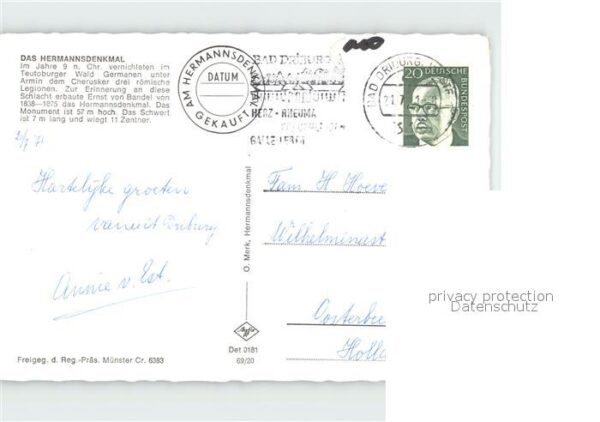 DAS HERMANNSDENKMAL
Im Jahre 9 n. Chr. vernichteten im
Teutoburger Wald Germanen unter
Armin dem Cherusker drei römische
Legionen. Zur Erinnerung an diese
Schlacht erbaute Ernst von Bandel von
1838—1875 das Hermannsdenkmal. Das
Monument ist 57 m hoch. Das Schwert
ist 7 m lang und wiegt 11 Zentner.
AM HERMANNSDENKMAL
DATUM
GEKAUFT
BAD DRIBURG
HERZ - RHEUMA
GALLE-LEBER
BAD DRIBURG
20 DEUTSCHE
BUNDESPOST
Hartelijke groeten
vanuit Driburg
Annie v. Est.
O. Merk, Hermannsdenkmal
Fam. H. Hoeve
Wilhelminast
Oosterbee
Holla
Agfa
Det 0181
69/20
Freigeg. d. Reg.-Präs. Münster Cr. 6383
privacy protection
Datenschutz